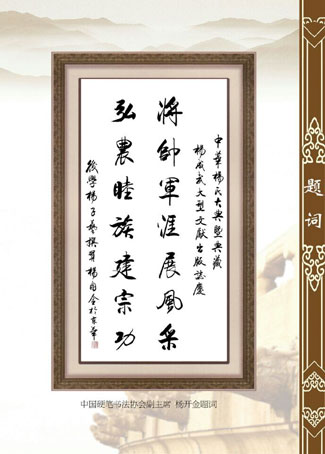 中华杨氏大典暨典藏
杨成武大型文献出版志庆
將帥軍涯展風采
弘農睦族建宗功
後學杨子 撰
杨開金 於京華
题词
中国硬笔书法协会副主席 杨开金题词